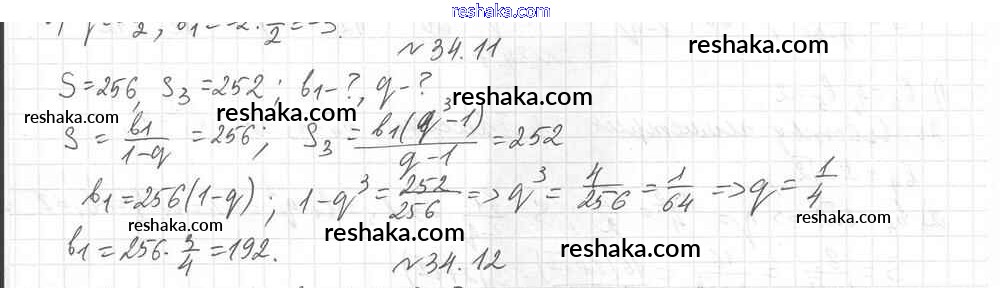 reshaka.com
q = 1/2, b1 = -2 · 3/2 = -3.
№34.11
reshaka.com
S = 256, S3 = 252; b1 - ?, q - ?
reshaka.com
reshaka.com
reshaka.com
S = b1/(1-q) = 256; S3 = b1(q^3-1)/(q-1) = 252
b1 = 256(1-q); 1-q^3 = 252/256 => q^3 = 4/256 = 1/64 => q = 1/4
reshaka.com
reshaka.com
reshaka.com
b1 = 256 · 3/4 = 192.
reshaka.com
№34.12
reshaka.com